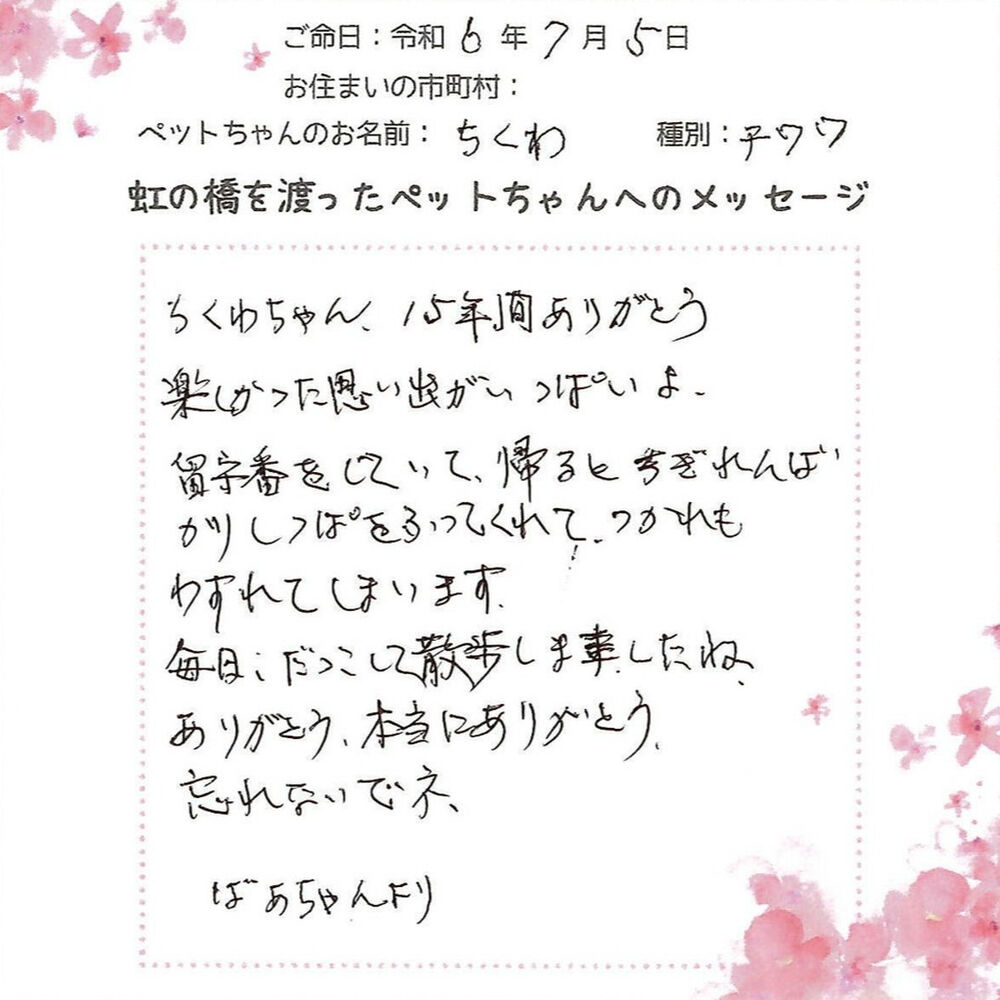 ご命日：令和 6 年 7 月 5 日
お住まいの市町村：
ペットちゃんのお名前： ちくわ 種別：チワワ
虹の橋を渡ったペットちゃんへのメッセージ
ちくわちゃん、15年間ありがとう
楽しかった思い出がいっぱいよ、
留守番をしていて、帰るとちぎれんば
かりしっぽをふってくれて、つかれも
わすれてしまいます。
毎日、だっこして散歩しましたね、
ありがとう、本当にありがとう、
忘れないでネ、
ばあちゃんより